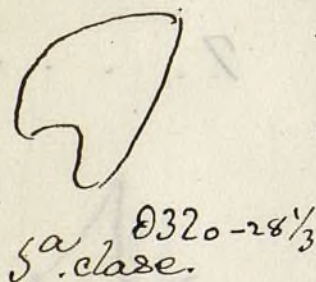 0320-28 1/3
5ª clase.